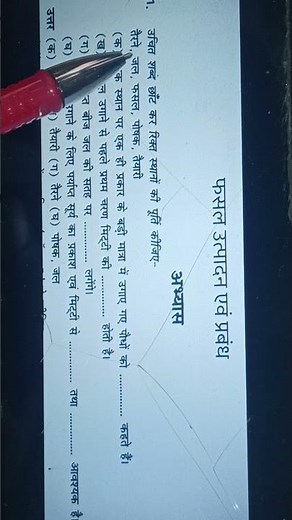 फसल उत्पादन एवं प्रबंध
अभ्यास
1. उचित शब्द छाँट कर रिक्त स्थानों की पूर्ति कीजिए-
तैरने, जल, फसल, पोषक, तैयारी
(क) क स्थान पर एक ही प्रकार के बड़ी मात्रा में उगाए गए पौधों को ............ कहते हैं।
(ख) ल उगाने से पहले प्रथम चरण मिट्टी की ............ होती है।
(ग) त बीज जल की सतह पर ............ लगेंगे।
(घ) गाने के लिए पर्याप्त सूर्य का प्रकाश एवं मिट्टी से ............ तथा ............ आवश्यक है।
उत्तर (क) ) तैयारी (ग) तैरने (घ) पोषक, जल